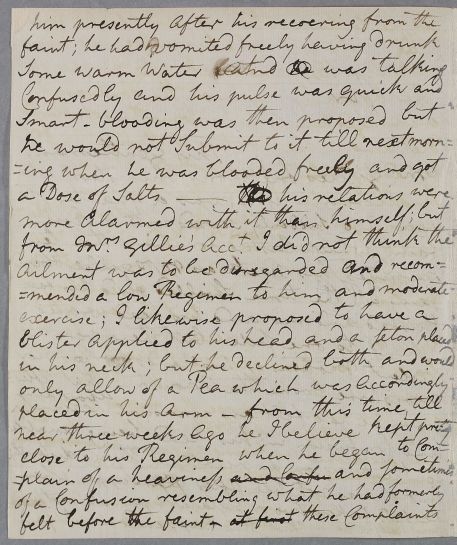 him presently after his recovering from the
faint; he had vomited freely having drunk
some warm Water and was talking
Confusedly and his pulse was quick and
Smart - blooding was then proposed but
he would not Submit to it till next morn=
=ing when he was blooded freely and got
a Dose of Salts — his relations were
more alarmed with it than himself; but
from Mrs Gillie's Acct I did not think the
ailment was to be disregarded and recom=
=mended a low Regimen to him and moderate
exercise; I likewise proposed to have a
blister applied to his head and a seton placed
in his neck; but he declined both and would
only allow of a Pea which was accordingly
placed in his Arm - from this time till
near three weeks ago he I believe kept pretty
close to his Regimen when he began to Com=
=plain of a heaviness and and sometimes
of a Confusion resembling what he had formerly
felt before the faint - at first these Complaints